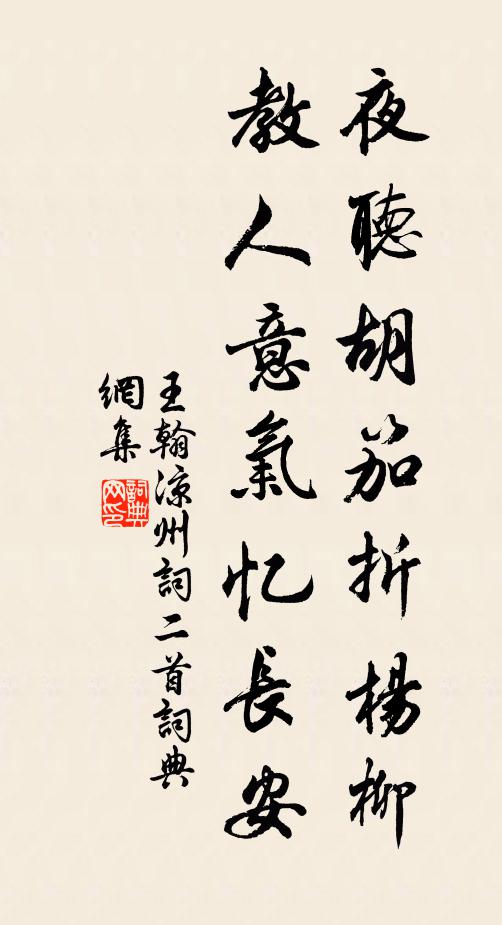 夜聽胡笳折楊柳
教人意氣忆長安
王翰涼州詞二首詞典
網集
詞典網印